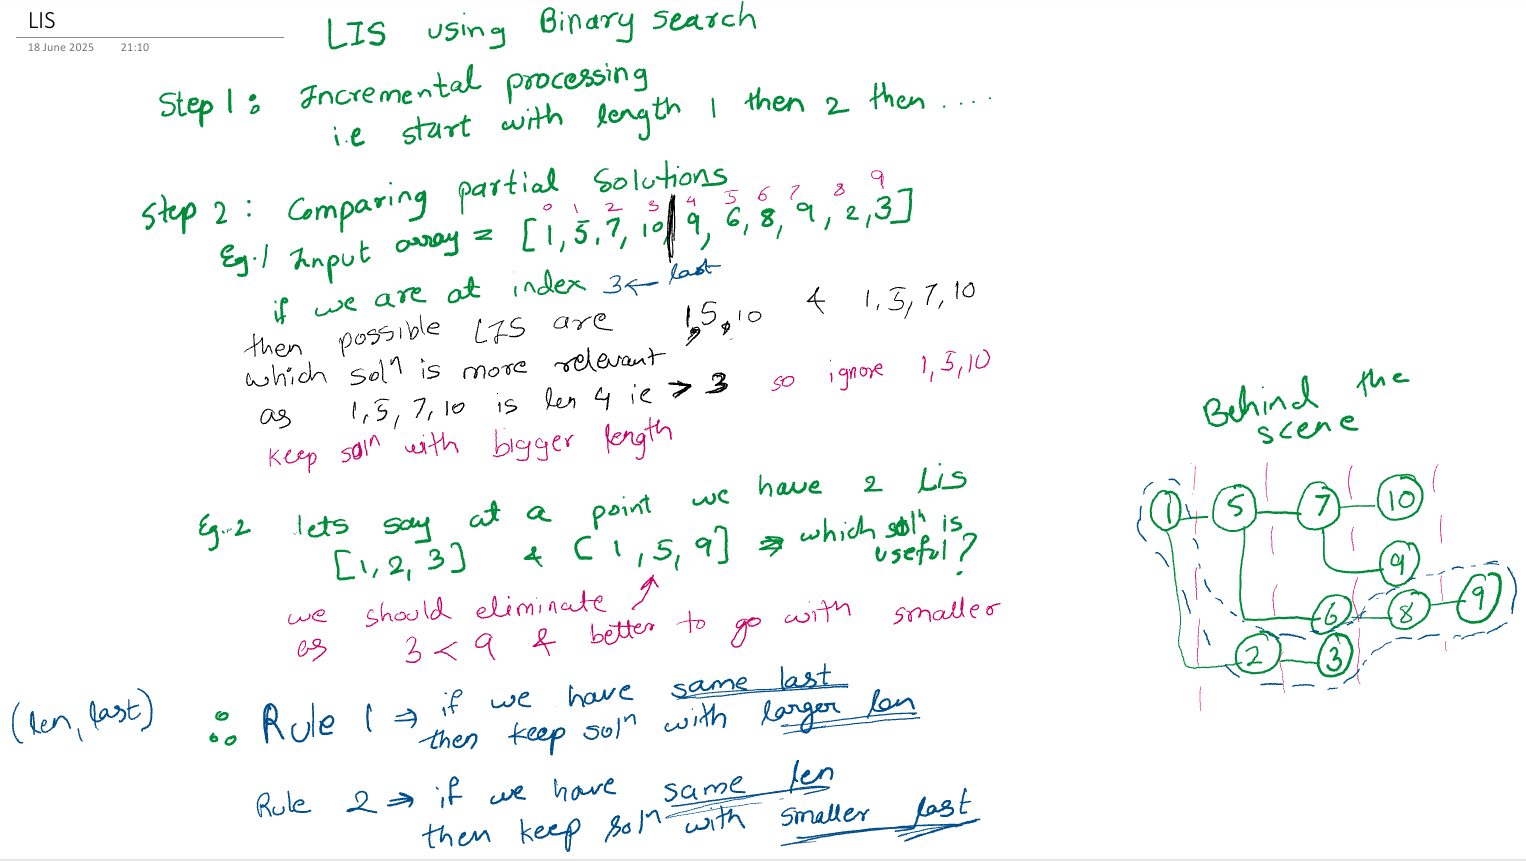 LIS
18 June 2025 21:10
LIS using Binary search
Step 1: Incremental processing
i.e start with length 1 then 2 then ....
Step 2: Comparing partial solutions
0 1 2 3 4 5 6 7 8 9
Eg.1 Input array = [1, 5, 7, 10, 9, 6, 8, 9, 2, 3]
if we are at index 3 ← last
then possible LIS are 1, 5, 10 & 1, 5, 7, 10
which solⁿ is more relevant
as 1, 5, 7, 10 is len 4 ie > 3 so ignore 1, 5, 10
keep solⁿ with bigger length
Eg.2 lets say at a point we have 2 Lis
[1, 2, 3] & [1, 5, 9] ⇒ which solⁿ is
useful?
we should eliminate
as 3 < 9 & better to go with smaller
(len, last)
∴ Rule 1 ⇒ if we have same last
then keep solⁿ with larger len
Rule 2 ⇒ if we have same len
then keep solⁿ with smaller last
Behind the
scene
1 5 7 10
9
6 8 9
2 3